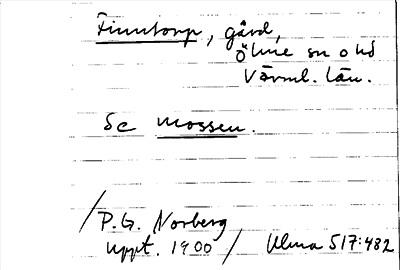 Finntorp, gård,
Ölme sn o hd
Värml. län.
Se mossen.
/P.G. Norberg
uppt. 1900/ Ulma 517:482